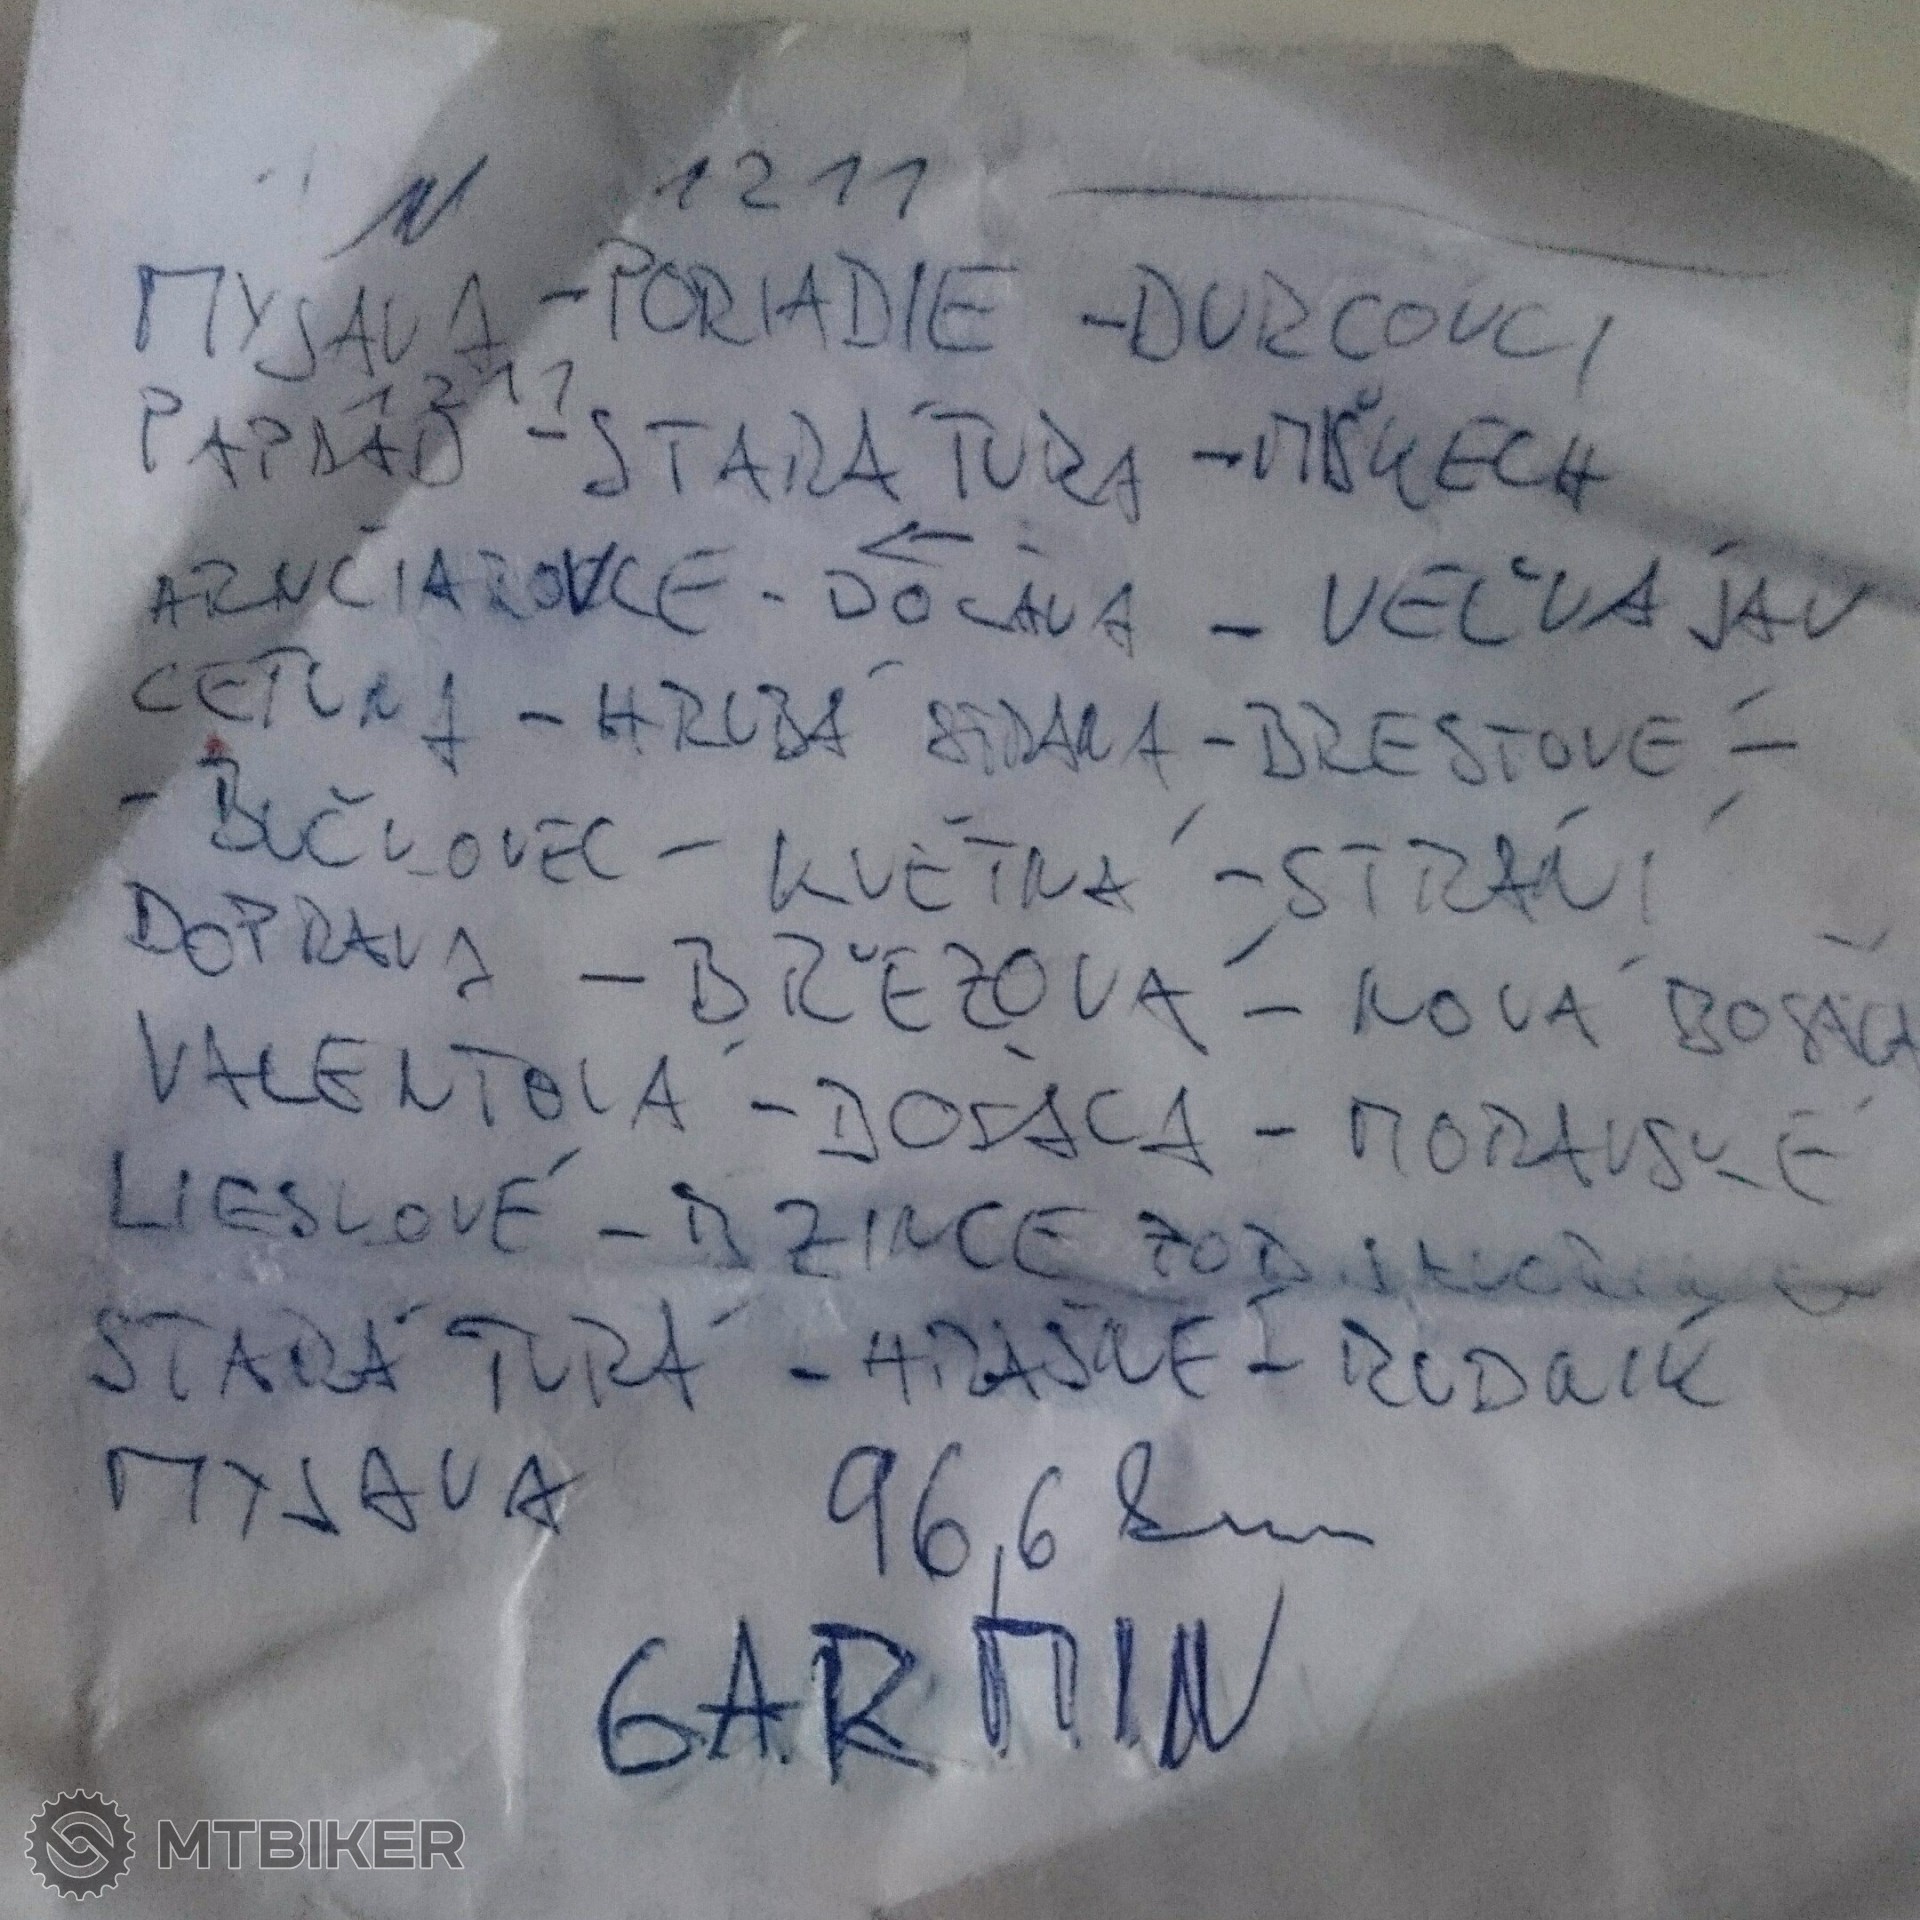 1211
MYJAVA - PORIADIE - DURCOVCI
1211
PAPRAD - STARÁ TURA - MIŠKECH
ARNČIAROVCE - DOĽAVA - VEĽKÁ JAV
CETUNA - HRUBÁ STRANA - BRESTOVÉ -
- BUČKOVEC - KVĚTNÁ - STRÁNÍ
DOPRAVA - BŘEZOVÁ - NOVÁ BOŠÁCA
VALENTOVÁ - BOŠÁCA - MORAVSKÉ
LIESKOVÉ - BZINCE POD
STARÁ TURÁ - HRAŠNÉ - RUDNIK
MYJAVA 96,6 km
GARMIN
MTBIKER